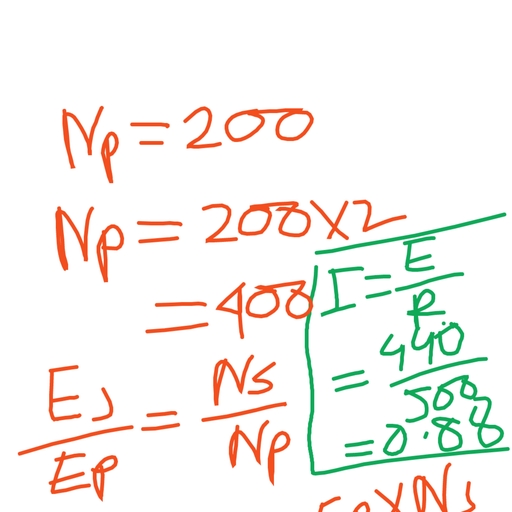 Np = 200
Np = 200 × 2
= 400
Es/Ep = Ns/Np
I = E/R
= 440/500
= 0.88
Ep × Ns